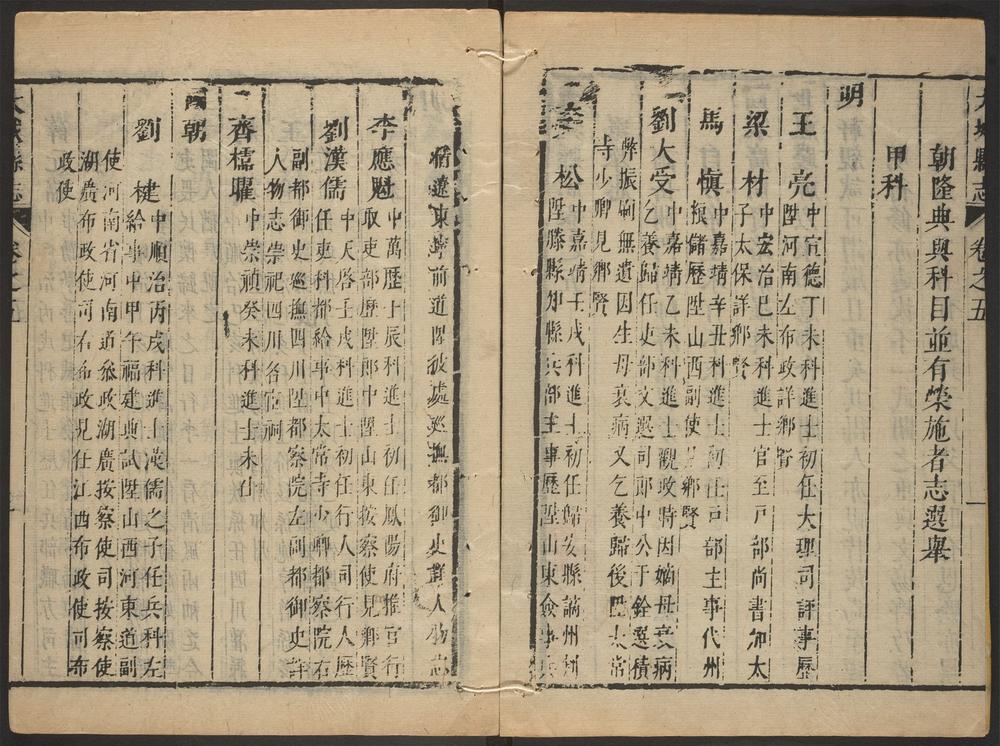 大城縣志
卷之五
一
朝隆典與科目並有榮施者志選舉
甲科
明
王亮
中宣德丁未科進士初任大理司評事歷
陞河南左布政詳鄉賢
梁材
中宏治己未科進士官至戶部尚書加太
子太保詳鄉賢
馬慎
中嘉靖辛丑科進士初任戶部主事代州
糧儲歷陞山西副使
鄉賢
劉大受
中嘉靖乙未科進士觀政時因嫡母衰病
乞養歸任吏部文選司郎中公于銓選積
弊振刷無遺因生母衰病又乞養歸後陞太常
寺少卿見鄉賢
李松
中嘉靖壬戌科進士初任歸安縣謫州州
陞滕縣知縣兵部主事歷陞山東僉事兵
備遼東寧前道陞彼處巡撫都御史詳人物志
李應魁
中萬歷壬辰科進士初任鳳陽府推官行
取吏部歷陞郎中陞山東按察使見鄉賢
劉漢儒
中天啓壬戌科進士初任行人司行人歷
任吏科都給事中太常寺少卿都察院右
副都御史巡撫四川陞都察院左副都御史詳
人物志崇祀四川各官祠
齊檽曜
中崇禎癸未科進士未仕
國朝
劉楗
中順治丙戌科進士漢儒之子任兵科左
給事中甲午福建典試陞山西河東道副
使河南省河南道叅政湖廣按察使司按察使
湖廣布政使司右布政見任江西布政使司布
政使
大城縣志
卷之五